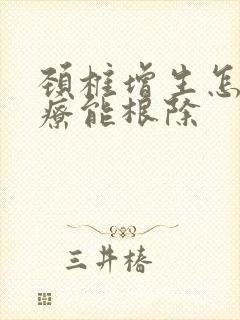 颈椎增生怎
疗能根除
三井椿